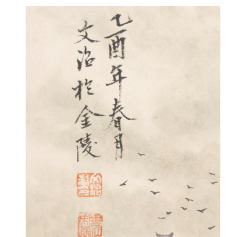 乙酉年春月
文治於金陵